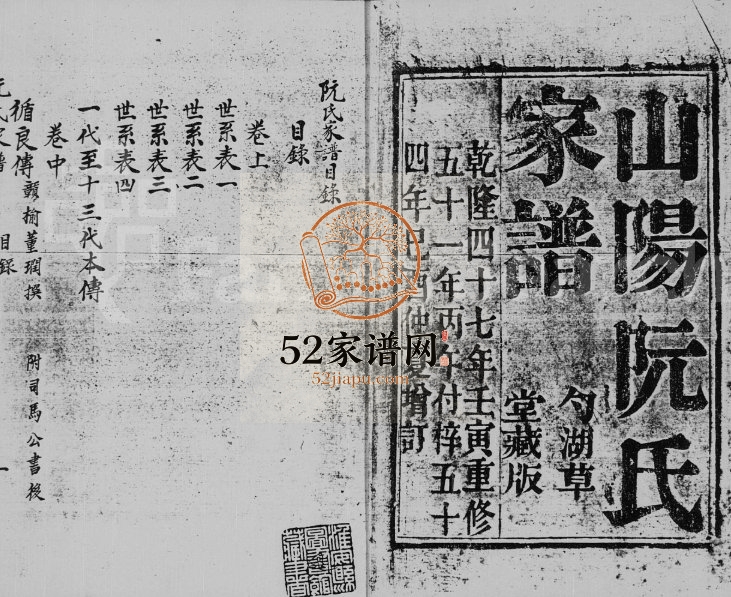 山陽阮氏
家譜
勺湖草
堂藏版
乾隆四十七年壬寅重修
五十一年丙午付梓五十
四年己酉仲夏增訂
阮氏家譜目錄
目錄
卷上
世系表一
世系表二
世系表三
世系表四
一代至十三代本傳
卷中
循良傳 董瓓撰 附司馬公書後
阮氏家譜 目錄 一
52家谱网
52jiapu.com
藏書